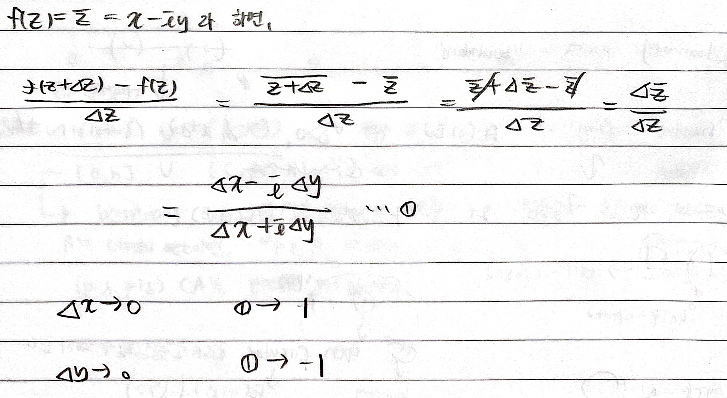 f(z) = z̅ = x - iy 라 하면,
(f(z+Δz) - f(z))/Δz = (z̅+̅Δ̅z̅ - z̅)/Δz = (z̅ + Δz̅ - z̅)/Δz = Δz̅/Δz
= (Δx - iΔy)/(Δx + iΔy) ... ①
Δx → 0 ① → 1
Δy → 0 ① → -1